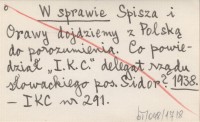 W sprawie Spisza i
Orawy dojdziemy z Polską
do porozumienia. Co powie-
dział „I.K.C.” delegat rządu
słowackiego pos. Sidor? 1938.
– IKC nr 291.